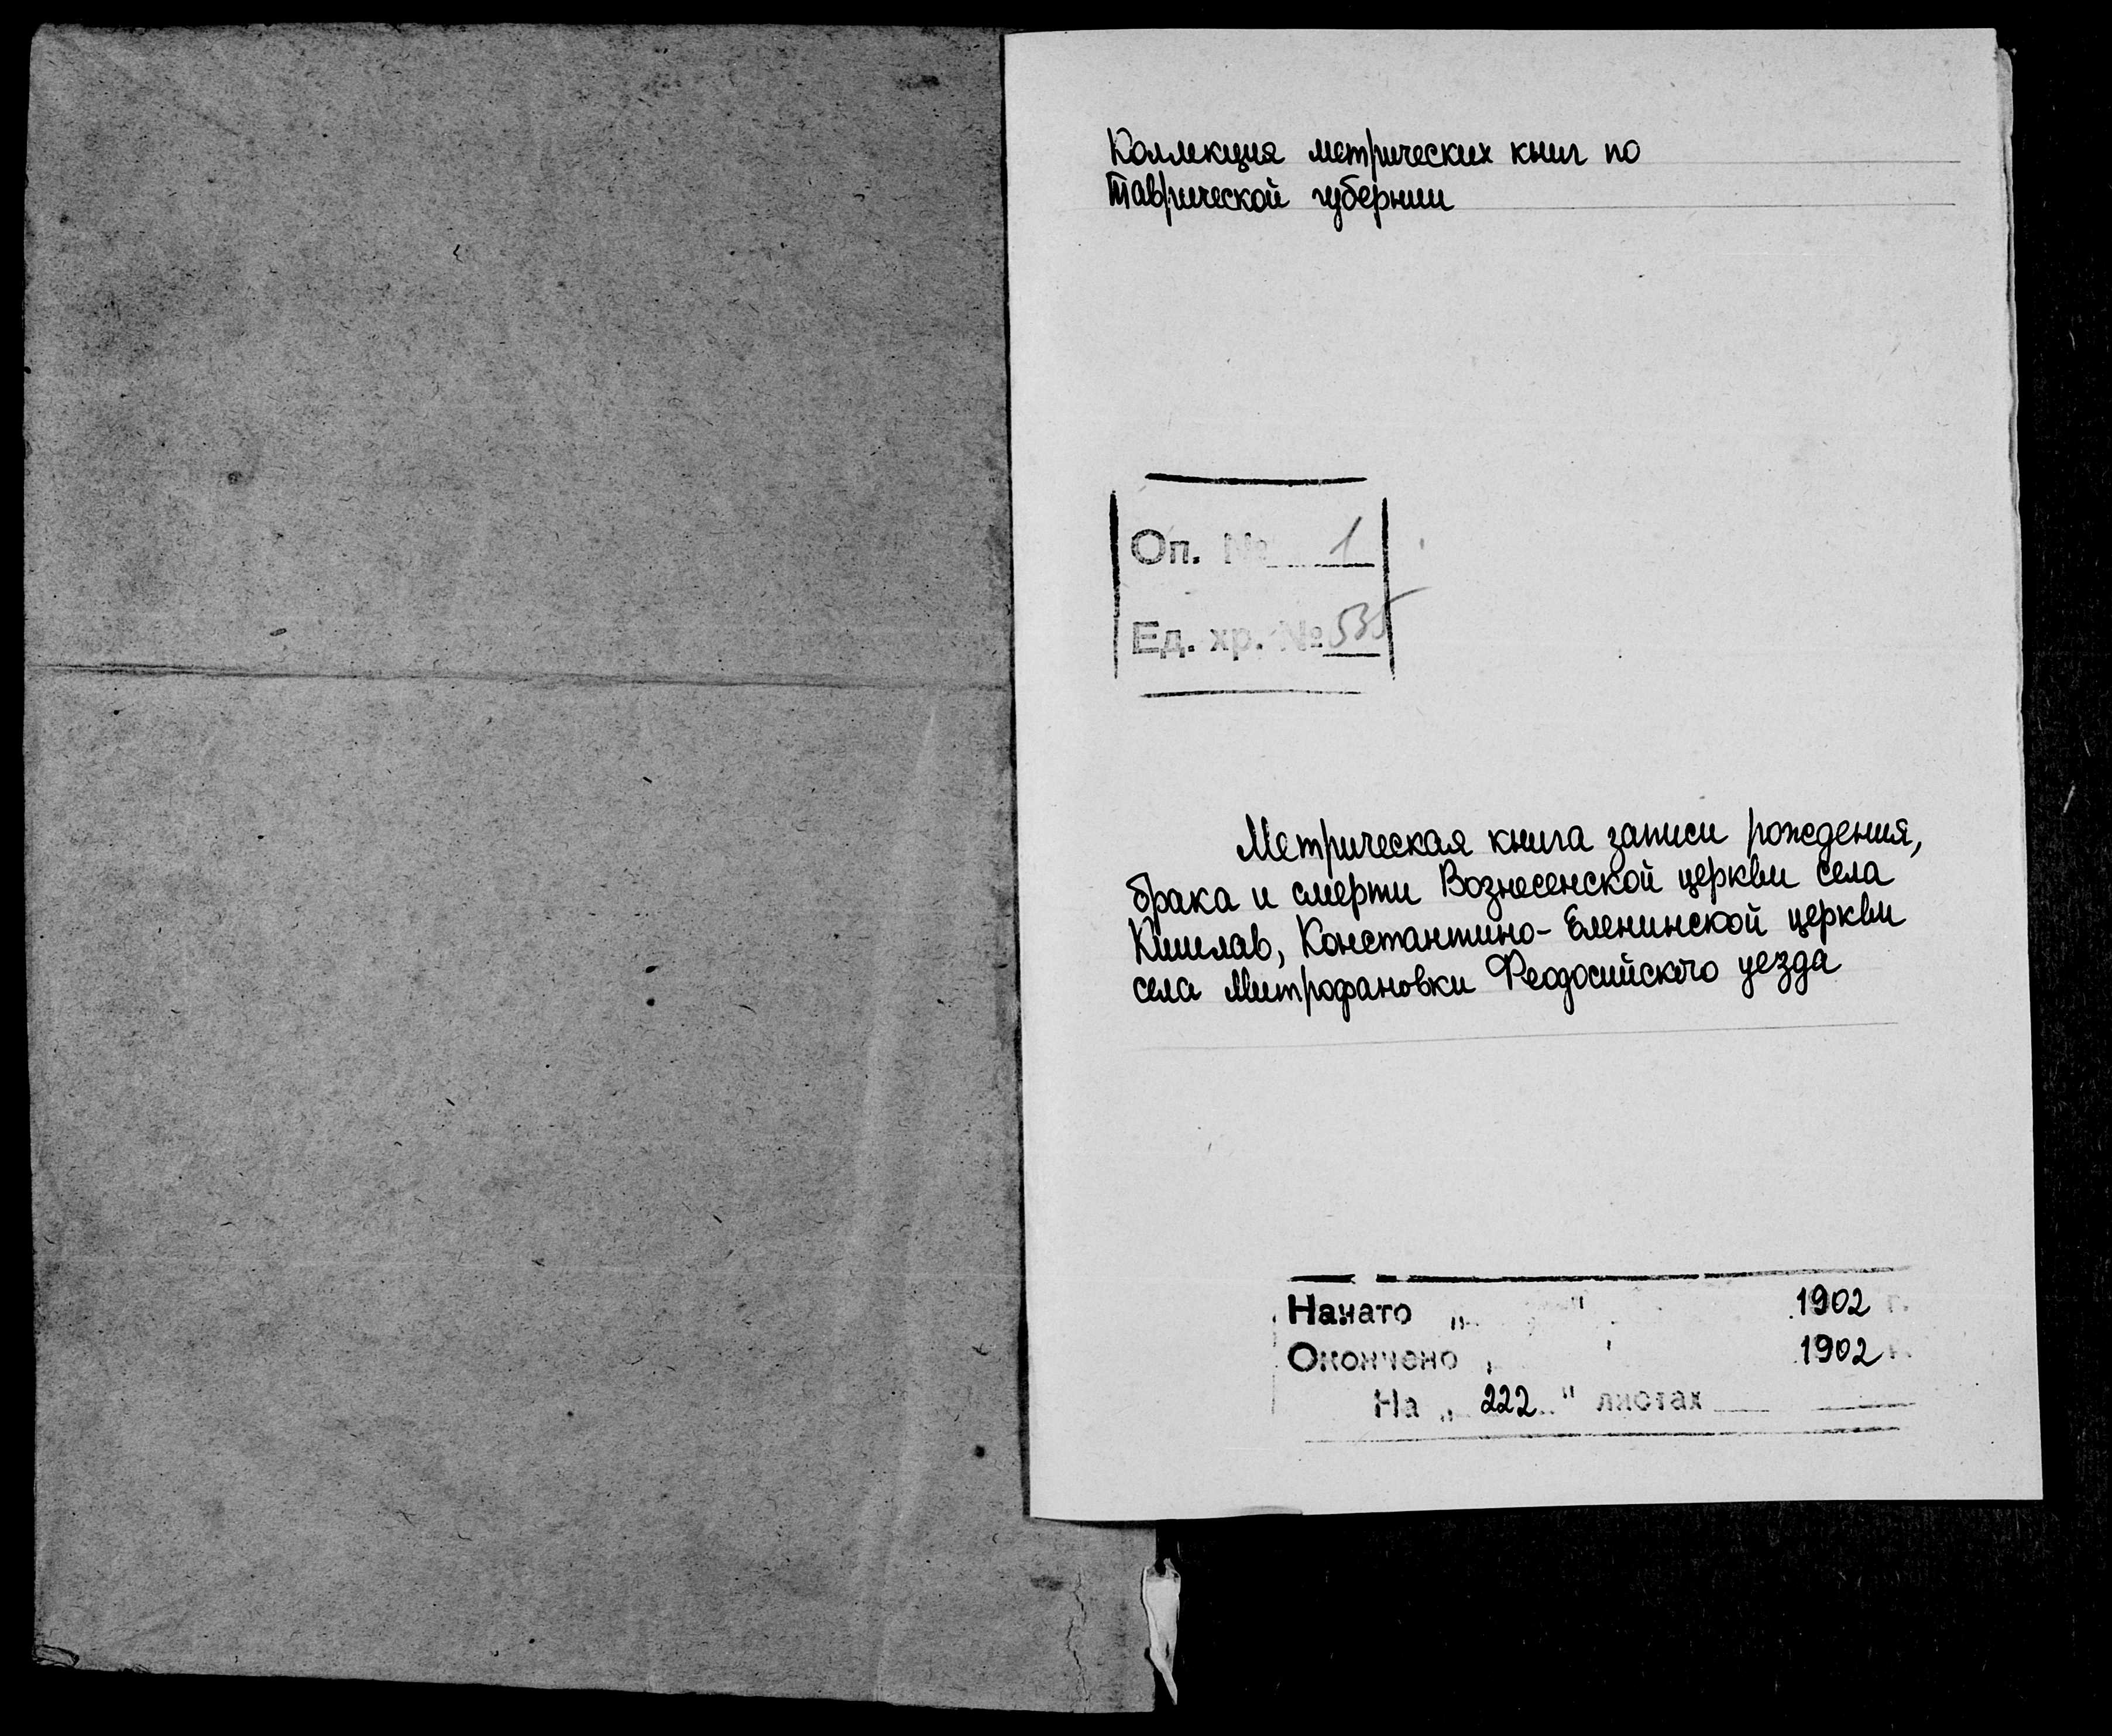 Коллекция метрических книг по
Таврической губернии
Оп. № 1
Ед. хр. № 535
Метрическая книга записи рождения,
брака и смерти Вознесенской церкви села
Кишлав, Константино-Еленинской церкви
села Митрофановки Феодосийского уезда
Начато „ " 1902 г.
Окончено „ " 1902 г.
На „ 222 " листах